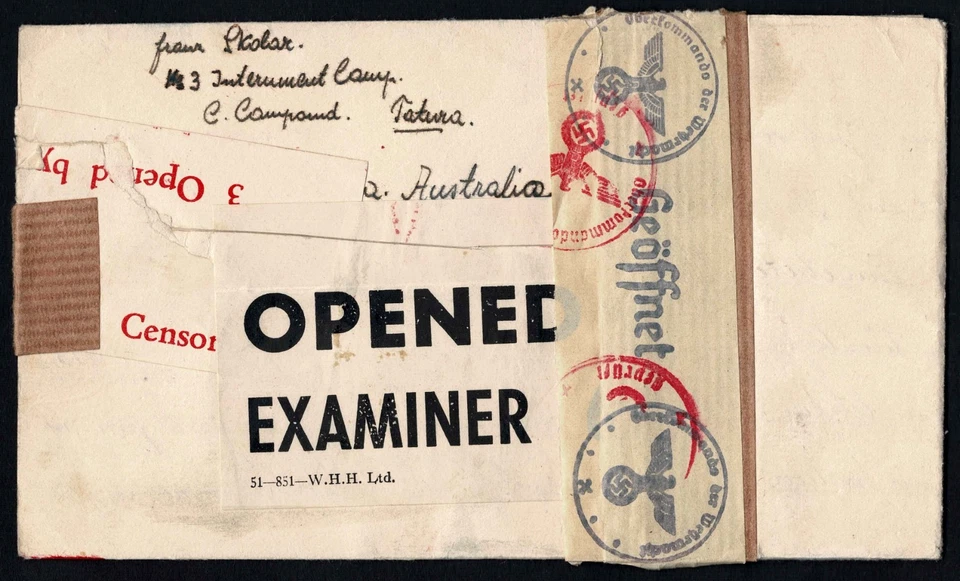 franz Skolar.
No 3 Internment Camp.
C. Compound. Tatura.
a. Australia
3 Opened by
Censor
OPENED
EXAMINER
51—851—W.H.H. Ltd.
Oberkommando der Wehrmacht
Oberkommando
Geöffnet
Geprüft
Oberkommando der Wehrmacht